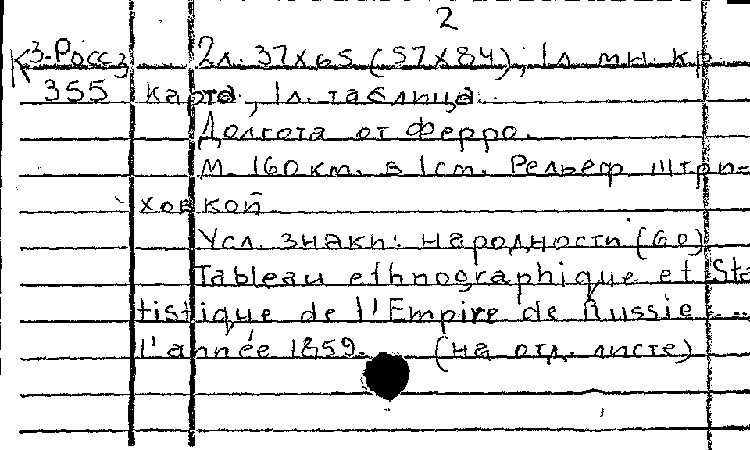 2
К 3-Росс3 2л. 37х65 (57х84), 1л мн. кр.
355 карта, 1л. таблица.
Долгота от Ферро.
М. 160км. в 1см. Рельеф штри-
ховкой
Усл. знаки: народности (60)
Tableau ethnographique et Sta
tistique de l'Empire de Russie ...
l'année 1859. (на отд. листе)